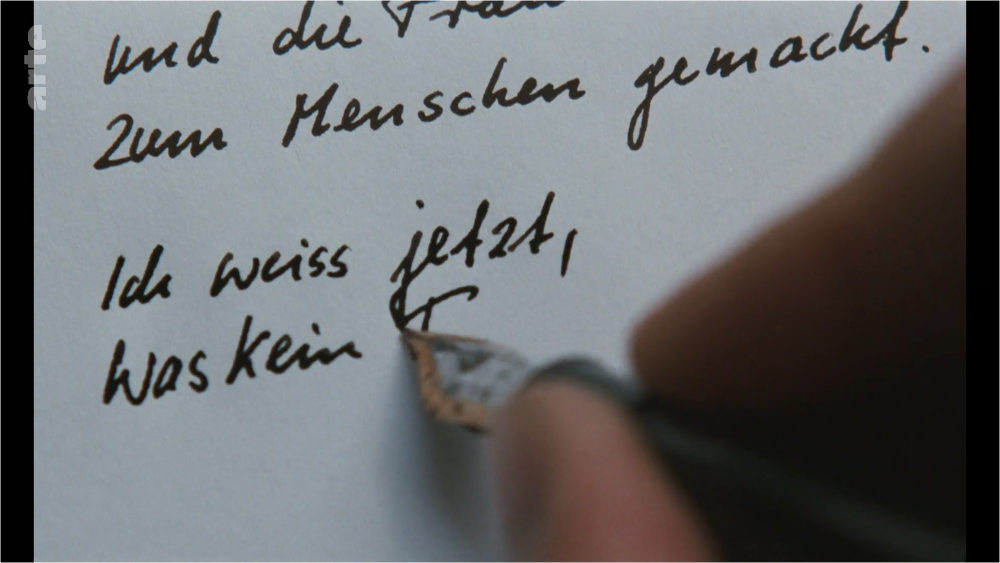 arte
und die Frau
zum Menschen gemacht.
Ich weiss jetzt,
was kein